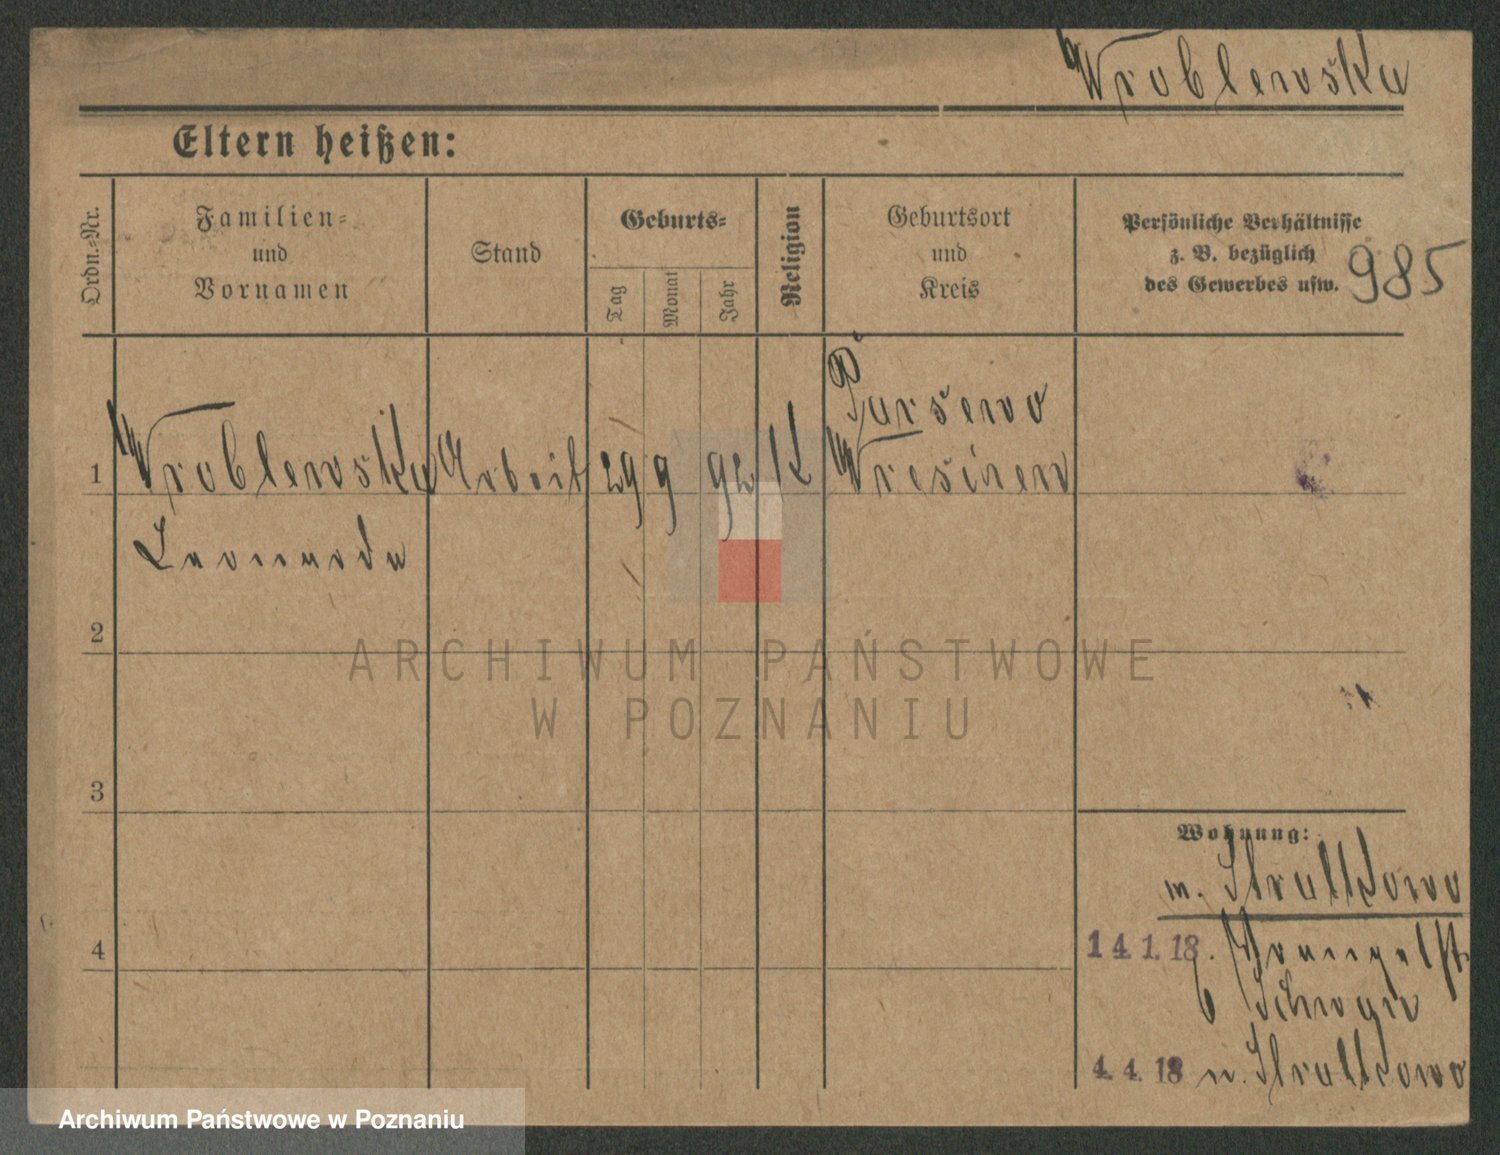 Wroblewska
Eltern heißen:
Ordn.=Nr.
Familien=
und
Vornamen
Stand
Geburts=
Tag
Monat
Jahr
Religion
Geburtsort
und
Kreis
Persönliche Verhältnisse
z. B. bezüglich
des Gewerbes usw.
985
1
Wroblewska
Arbeit
29
9
92
K
Wreschen
Leonarda
2
ARCHIWUM PAŃSTWOWE
W POZNANIU
3
Wohnung:
Strałkowo
4
14.1.18.
4.4.18
n. Strałkowo
Archiwum Państwowe w Poznaniu